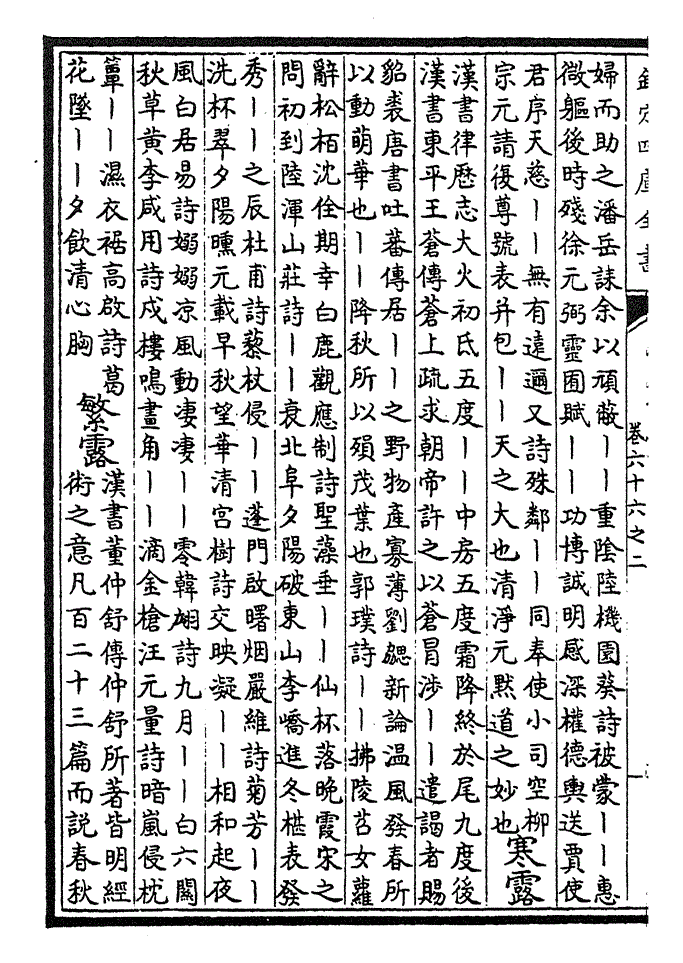 欽定四庫全書
卷六十六之二
婦而助之潘岳誄余以頑蔽丨丨重陰陸機園葵詩被蒙丨丨惠
微軀後時殘徐元弼靈囿賦丨丨功博誠明感深權德輿送賈使
君序天慈丨丨無有遠邇又詩殊鄰丨丨同奉使小司空柳
宗元請復尊號表并包丨丨天之大也清淨元默道之妙也
寒露
漢書律歷志大火初氐五度丨丨中房五度霜降終於尾九度後
漢書東平王蒼傳蒼上疏求朝帝許之以蒼冒涉丨丨遣謁者賜
貂裘唐書吐蕃傳居丨丨之野物產寡薄劉勰新論温風發春所
以動萌華也丨丨降秋所以殞茂葉也郭璞詩丨丨拂陵苕女蘿
辭松栢沈佺期幸白鹿觀應制詩聖藻垂丨丨仙杯落晚霞宋之
問初到陸渾山莊詩丨丨衰北阜夕陽破東山李嶠進冬椹表發
秀丨丨之辰杜甫詩藜杖侵丨丨蓬門啟曙烟嚴維詩菊芳丨丨
洗杯翠夕陽曛元載早秋望華清宮樹詩交映凝丨丨相和起夜
風白居易詩嫋嫋凉風動凄凄丨丨零韓翃詩九月丨丨白六關
秋草黄李咸用詩戍樓鳴畫角丨丨滴金槍汪元量詩暗嵐侵枕
簟丨丨濕衣裾高啟詩葛
花墜丨丨夕飲清心胸
繁露
漢書董仲舒傳仲舒所著皆明經
術之意凡百二十三篇而說春秋